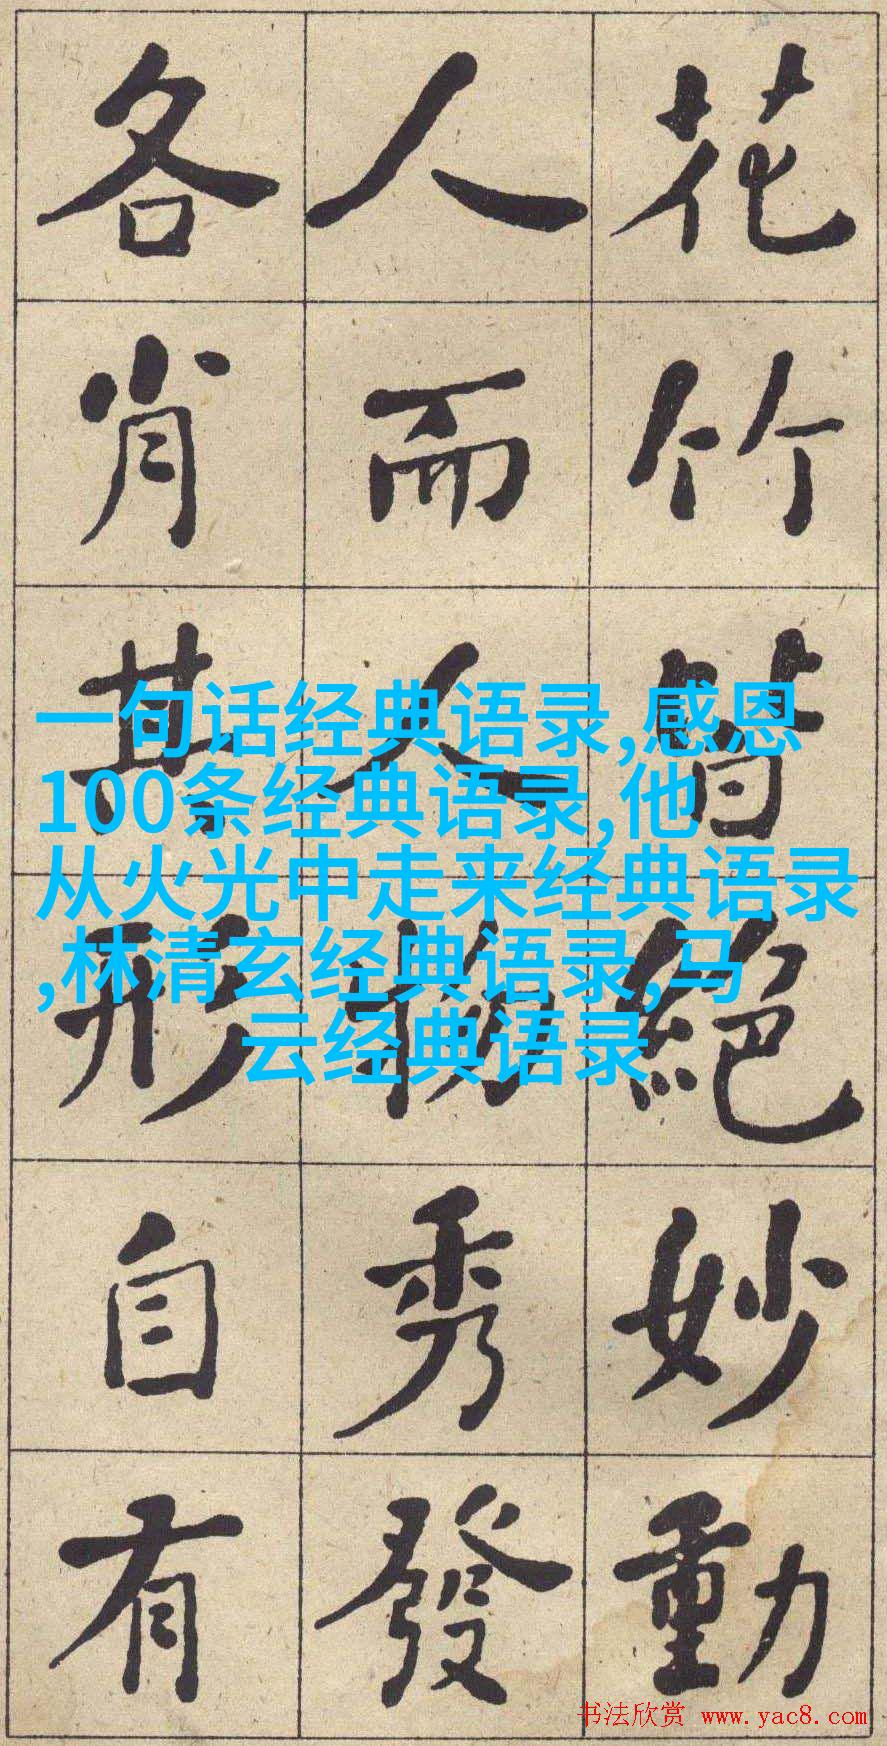 花竹皆絕妙動
人而人物秀發
各肖其形自有
一句话经典语录,感恩
100条经典语录,他
从火光中走来经典语录
,林清玄经典语录,马
云经典语录
书法欣赏 www.yac8.com